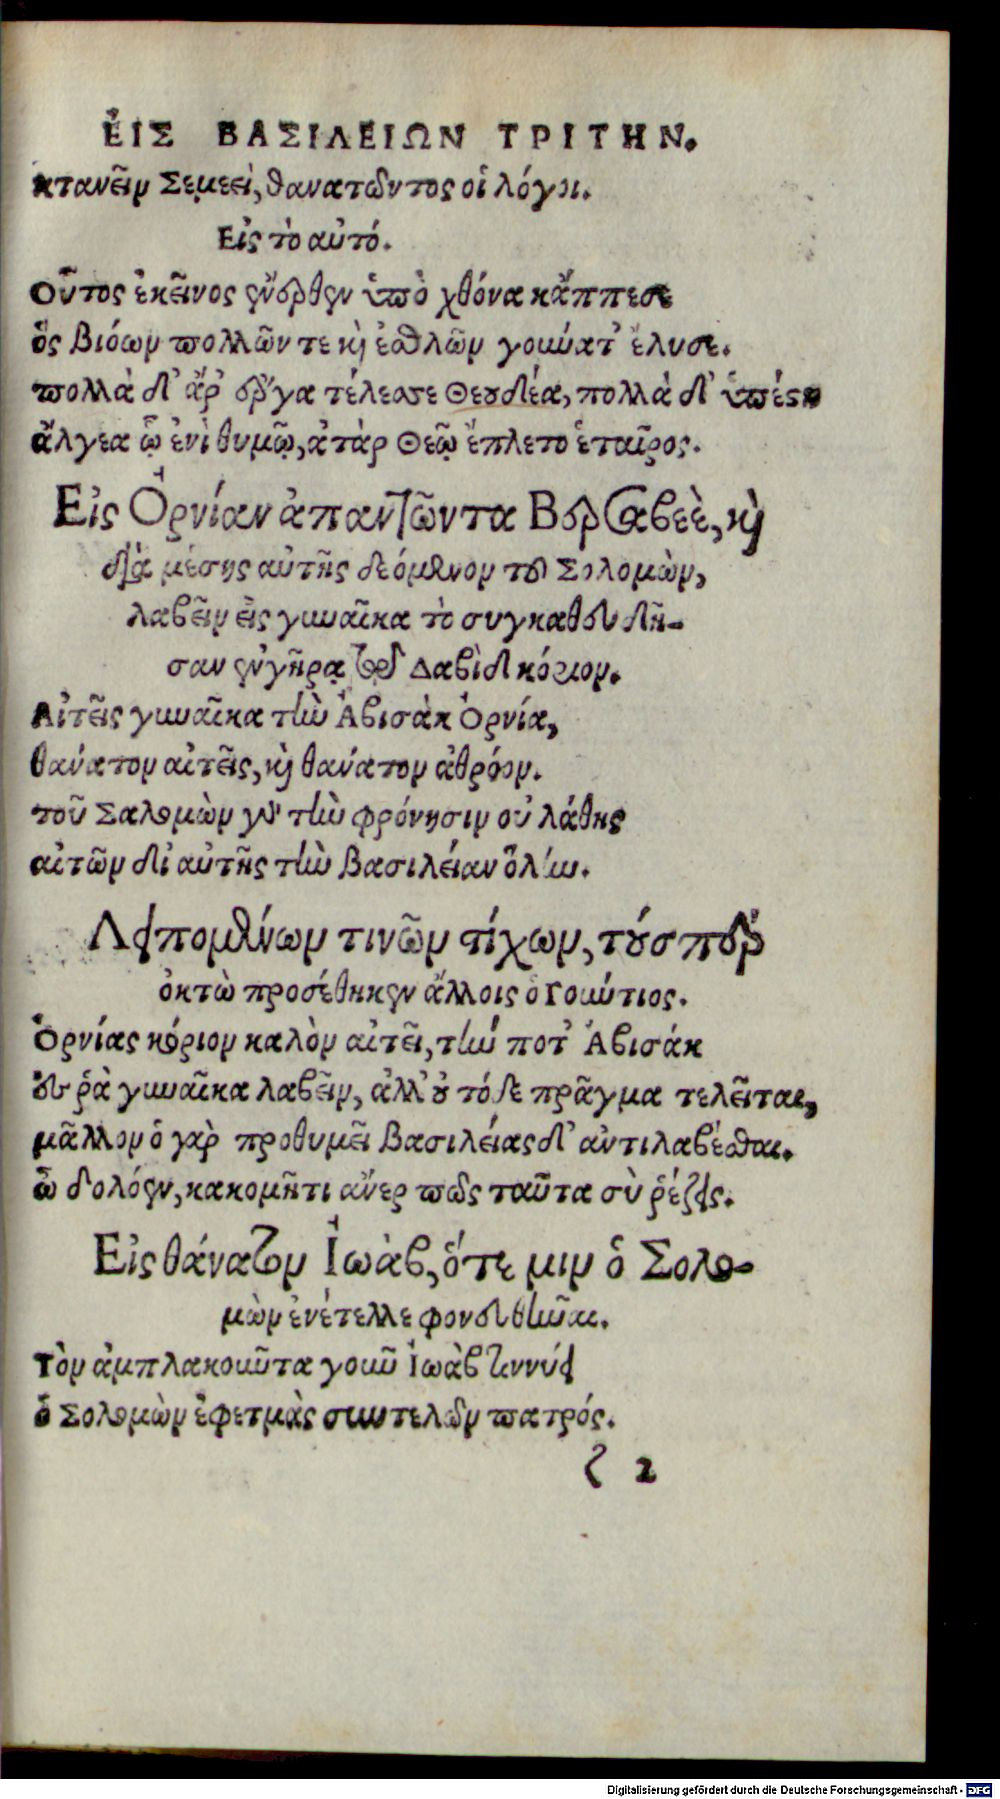 ἘΙΣ ΒΑΣΙΛΕΙΩΝ ΤΡΙΤΗΝ.
κτανεῖν Σεμεεὶ, θανατῶντος οἱ λόγοι.
Εἰς τὸ αὐτό.
Οὗτος ἐκεῖνος ἔνερθεν ὑπὸ χθόνα κάππεσε
ὃς βιόων πολλῶν τε καὶ ἐσθλῶν γούνατ' ἔλυσε.
πολλὰ δ' ἄρ' ἔργα τέλεσσε Θεουδέα, πολλὰ δ' ὑπέστη
ἄλγεα ᾧ ἐνὶ θυμῷ, ἀτὰρ Θεῷ ἔπλετο ἑταῖρος.
Εἰς Ὀρνίαν ἀπαντῶντα Βερσαβεὲ, καὶ
διὰ μέσης αὐτῆς δεόμενον τοῦ Σολομὼν,
λαβεῖν εἰς γυναῖκα τὸ συγκαθευδῆ-
σαν ἐν γήρᾳ τῷ Δαβὶδ κόριον.
Αἰτεῖς γυναῖκα τὴν Ἀβισὰκ Ὀρνία,
θάνατον αἰτεῖς, καὶ θάνατον ἀθρόον.
τοῦ Σαλομὼν γὰρ τὴν φρόνησιν οὐ λάθῃς
αἰτῶν δι' αὐτῆς τὴν βασιλείαν ὅλην.
Λειπομένων τινῶν στίχων, τούσπερ
ὀκτὼ προσέθηκεν ἄλλοις ὁ Γουνύτιος.
Ὀρνίας κόριον καλὸν αἰτεῖ, τήν ποτ' Ἀβισάκ
εὖ ῥὰ γυναῖκα λαβεῖν, ἀλλ' οὐ τόδε πρᾶγμα τελεῖται,
μᾶλλον ὁ γὰρ προθυμεῖ βασιλείας δ' ἀντιλαβέσθαι.
ὦ δολόεν, κακομῆτι ἄνερ πῶς ταῦτα σὺ ῥέζεις.
Εἰς θάνατον Ἰωὰβ, ὅτε μιν ὁ Σολο-
μὼν ἐνέτελλε φονευθῆναι.
Τὸν ἀμπλακοῦντα γοῦν Ἰωὰβ τιννύει
ὁ Σολομὼν ἐφετμὰς συντελῶν πατρός.
ζ 2
Digitalisierung gefördert durch die Deutsche Forschungsgemeinschaft - DFG